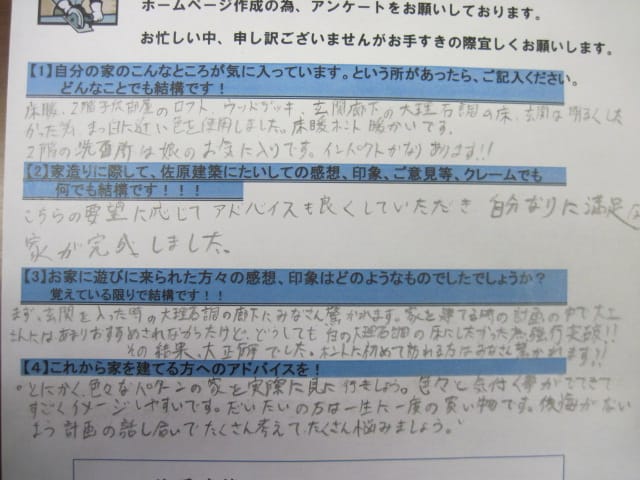 ホームページ作成の為、アンケートをお願いしております。
お忙しい中、申し訳ございませんがお手すきの際宜しくお願いします。
【1】自分の家のこんなところが気に入っています。という所があったら、ご記入ください。
どんなことでも結構です！
床暖、2階子供部屋のロフト、ウッドデッキ、玄関廊下の大理石調の床、玄関は明るくした
かった為、まっ白に近い色を使用しました。床暖ホント暖かいです。
2階の洗面所は娘のお気に入りです。インパクトかなりあります!!
【2】家造りに際して、佐原建築にたいしての感想、印象、ご意見等、クレームでも
何でも結構です！！！
こちらの要望に応じてアドバイスも良くしていただき 自分なりに満足な
家が完成しました。
【3】お家に遊びに来られた方々の感想、印象はどのようなものでしたでしょうか？
覚えている限りで結構です！！
まず、玄関を入った時の大理石調の廊下にみなさん驚かれます。家を建てる時の計画の中で大工
さんにはあまりおすすめされなかったけど、どうしても白の大理石調の床にしたかった為強行突破!!
その結果、大正解でした。ホントに初めて訪れる方はみなさん驚かれます!!
【4】これから家を建てる方へのアドバイスを！
とにかく、色々なパターンの家を実際に見に行きましょう。色々と気付く事がでてきて
すごくイメージしやすいです。だいたいの方は一生に一度の買い物です。後悔がない
よう計画の話し合いでたくさん考えてたくさん悩みましょう。